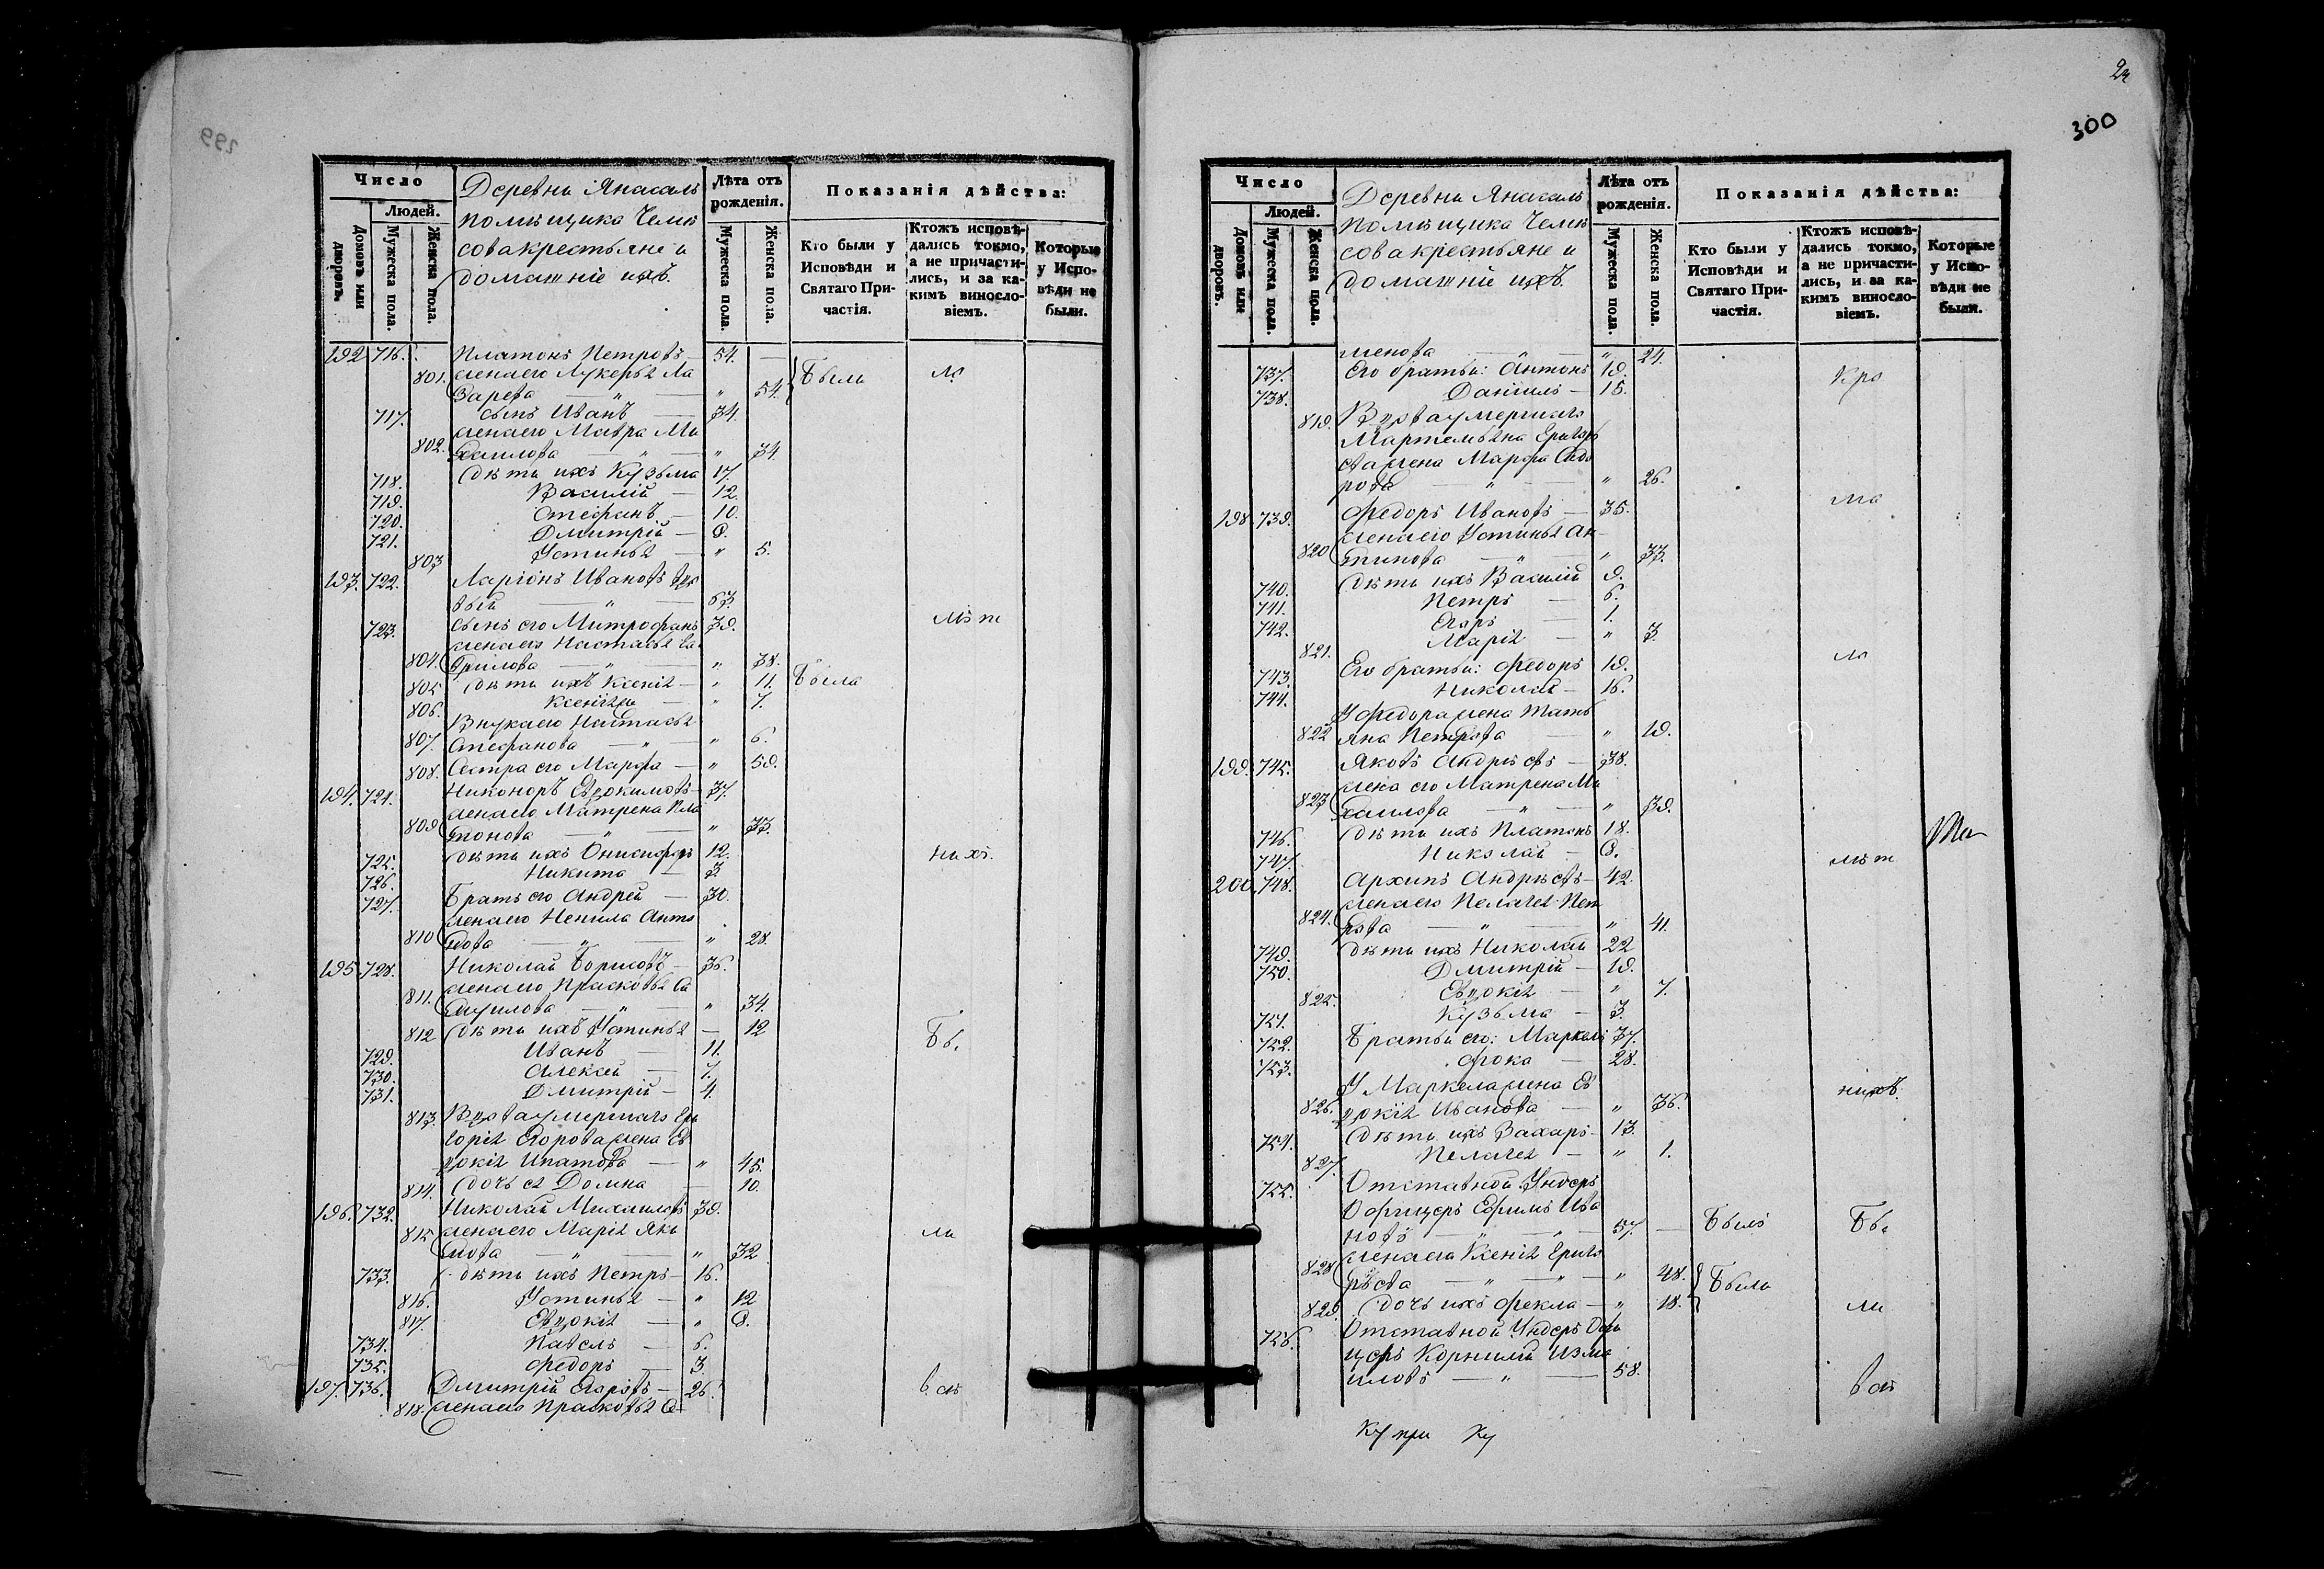 299
Число
Людей.
Домовъ или дворовъ.
Мужеска пола.
Женска пола.
Деревни Янасаль
помѣщика Чели
сова крестьяне и
домашніе ихъ.
Лѣта отъ рожденія.
Мужеска пола.
Женска пола.
Показанія дѣйства:
Кто были у Исповѣди и Святаго Причастія.
Ктожъ исповѣдались токмо, а не причастились, и за какимъ винословіемъ.
Которые у Исповѣди не были.
192. 716. Платонъ Петровъ 54. —
801. жена его Лукерья Ла
Зарева — " — " 54. Были
717. сынъ Иванъ — 34.
802. жена его Мавра Ми
хаилова — " — " 34
718. дѣти ихъ Кузьма 17.
719. Василій — 12.
720. Стефанъ — 10.
721. Дмитрій — 8.
803 Устинья — " 5.
193. 722. Ларіонъ Ивановъ вдо
вый — " — 63.
723. сынъ его Митрофанъ 39. лѣт
жена его Настасья Га
804. врилова — " — " 38.
805 дѣти ихъ Ксенія — " 11. Была
806. Ксенія — " 7.
Внука его Настасья
807. Стефанова — " — " 6.
808. Сестра его Марфа — " 59.
194. 724. Никоноръ Евдокимовъ 37.
жена его Матрена Пла
809 тонова — " — " 33.
725. дѣти ихъ Онисифоръ 12. нихъ.
726. Никита — 3
727. Братъ его Андрей — 30.
жена его Ненила Анто
810 нова — " — " 28.
195 728. Николай Борисовъ — 36.
811. жена его Прасковья Са
муилова — " — " 34.
812 дѣти ихъ Устинья — 12 Бы.
729. Иванъ — 11.
730. Алексей — 7.
731. Дмитрій — 4.
813. Вдова умершаго Гри
горія Егорова жена Ев
докія Ипатова — " 45.
814. дочь ея Домна — 10.
196. 732. Николай Михаиловъ 39.
815 жена его Марія Яко ли
влева — " — " 32
733. дѣти ихъ Петръ — 16.
816. Устинья — " 12
817. Евдокія — " 8.
734. Павелъ — 6.
735. Федоръ — 3
197. 736. Дмитрій Егоровъ — 26.
818. жена его Прасковья Се
300
Число
Людей.
Домовъ или дворовъ.
Мужеска пола.
Женска пола.
Деревни Янасаль
помѣщика Чели
сова крестьяне и
домашніе ихъ.
Лѣта отъ рожденія.
Мужеска пола.
Женска пола.
Показанія дѣйства:
Кто были у Исповѣди и Святаго Причастія.
Ктожъ исповѣдались токмо, а не причастились, и за какимъ винословіемъ.
Которые у Исповѣди не были.
менова — " — " 24.
737. Его братья: Антонъ 19. Кро
738. Даніилъ — 15.
819. Вдова умершаго
Мартемьяна Григорь
ева жена Марфа Сидо
рова — " — " 26.
198. 739. Федоръ Ивановъ — 35.
жена его Устинья Ан
820 типова — " — " 33.
740. дѣти ихъ Василій 9.
741. Петръ — 6.
742. Егоръ — 1.
821. Марія — " 3.
743. Его братья: Федоръ 19.
744. Николай — 16.
У Федора жена Тать
822 яна Петрова — " 19.
199. 745. Яковъ Андреевъ — 38.
жена его Матрена Ми
823 хаилова — " — " 39.
746. дѣти ихъ Платонъ 18.
747. Николай — 8. лѣт
200. 748. Архипъ Андреевъ — 42.
жена его Пелагея Пет
824. рова — " — " 41.
749. дѣти ихъ Николай 22
750. Дмитрій — 19.
825. Евдокія — " 7.
751. Кузьма — 3.
752. Братья его: Маркелъ 37.
753. Фока — 28.
У Маркела жена Ев нихъ.
826. докія Иванова — " 36.
754. дѣти ихъ Захаръ — 13.
827. Пелагея — " 1.
755. Отставной Ундеръ
Офицеръ Ефимъ Ива
новъ — " — 57. — Былъ Бы
828 жена его Ксенія Григо
рьева — " — " 48. Были
829. дочь ихъ Фекла — " 18. ли
756. Отставной Ундеръ Офи
церъ Корнилій Изма
иловъ — " — 58.